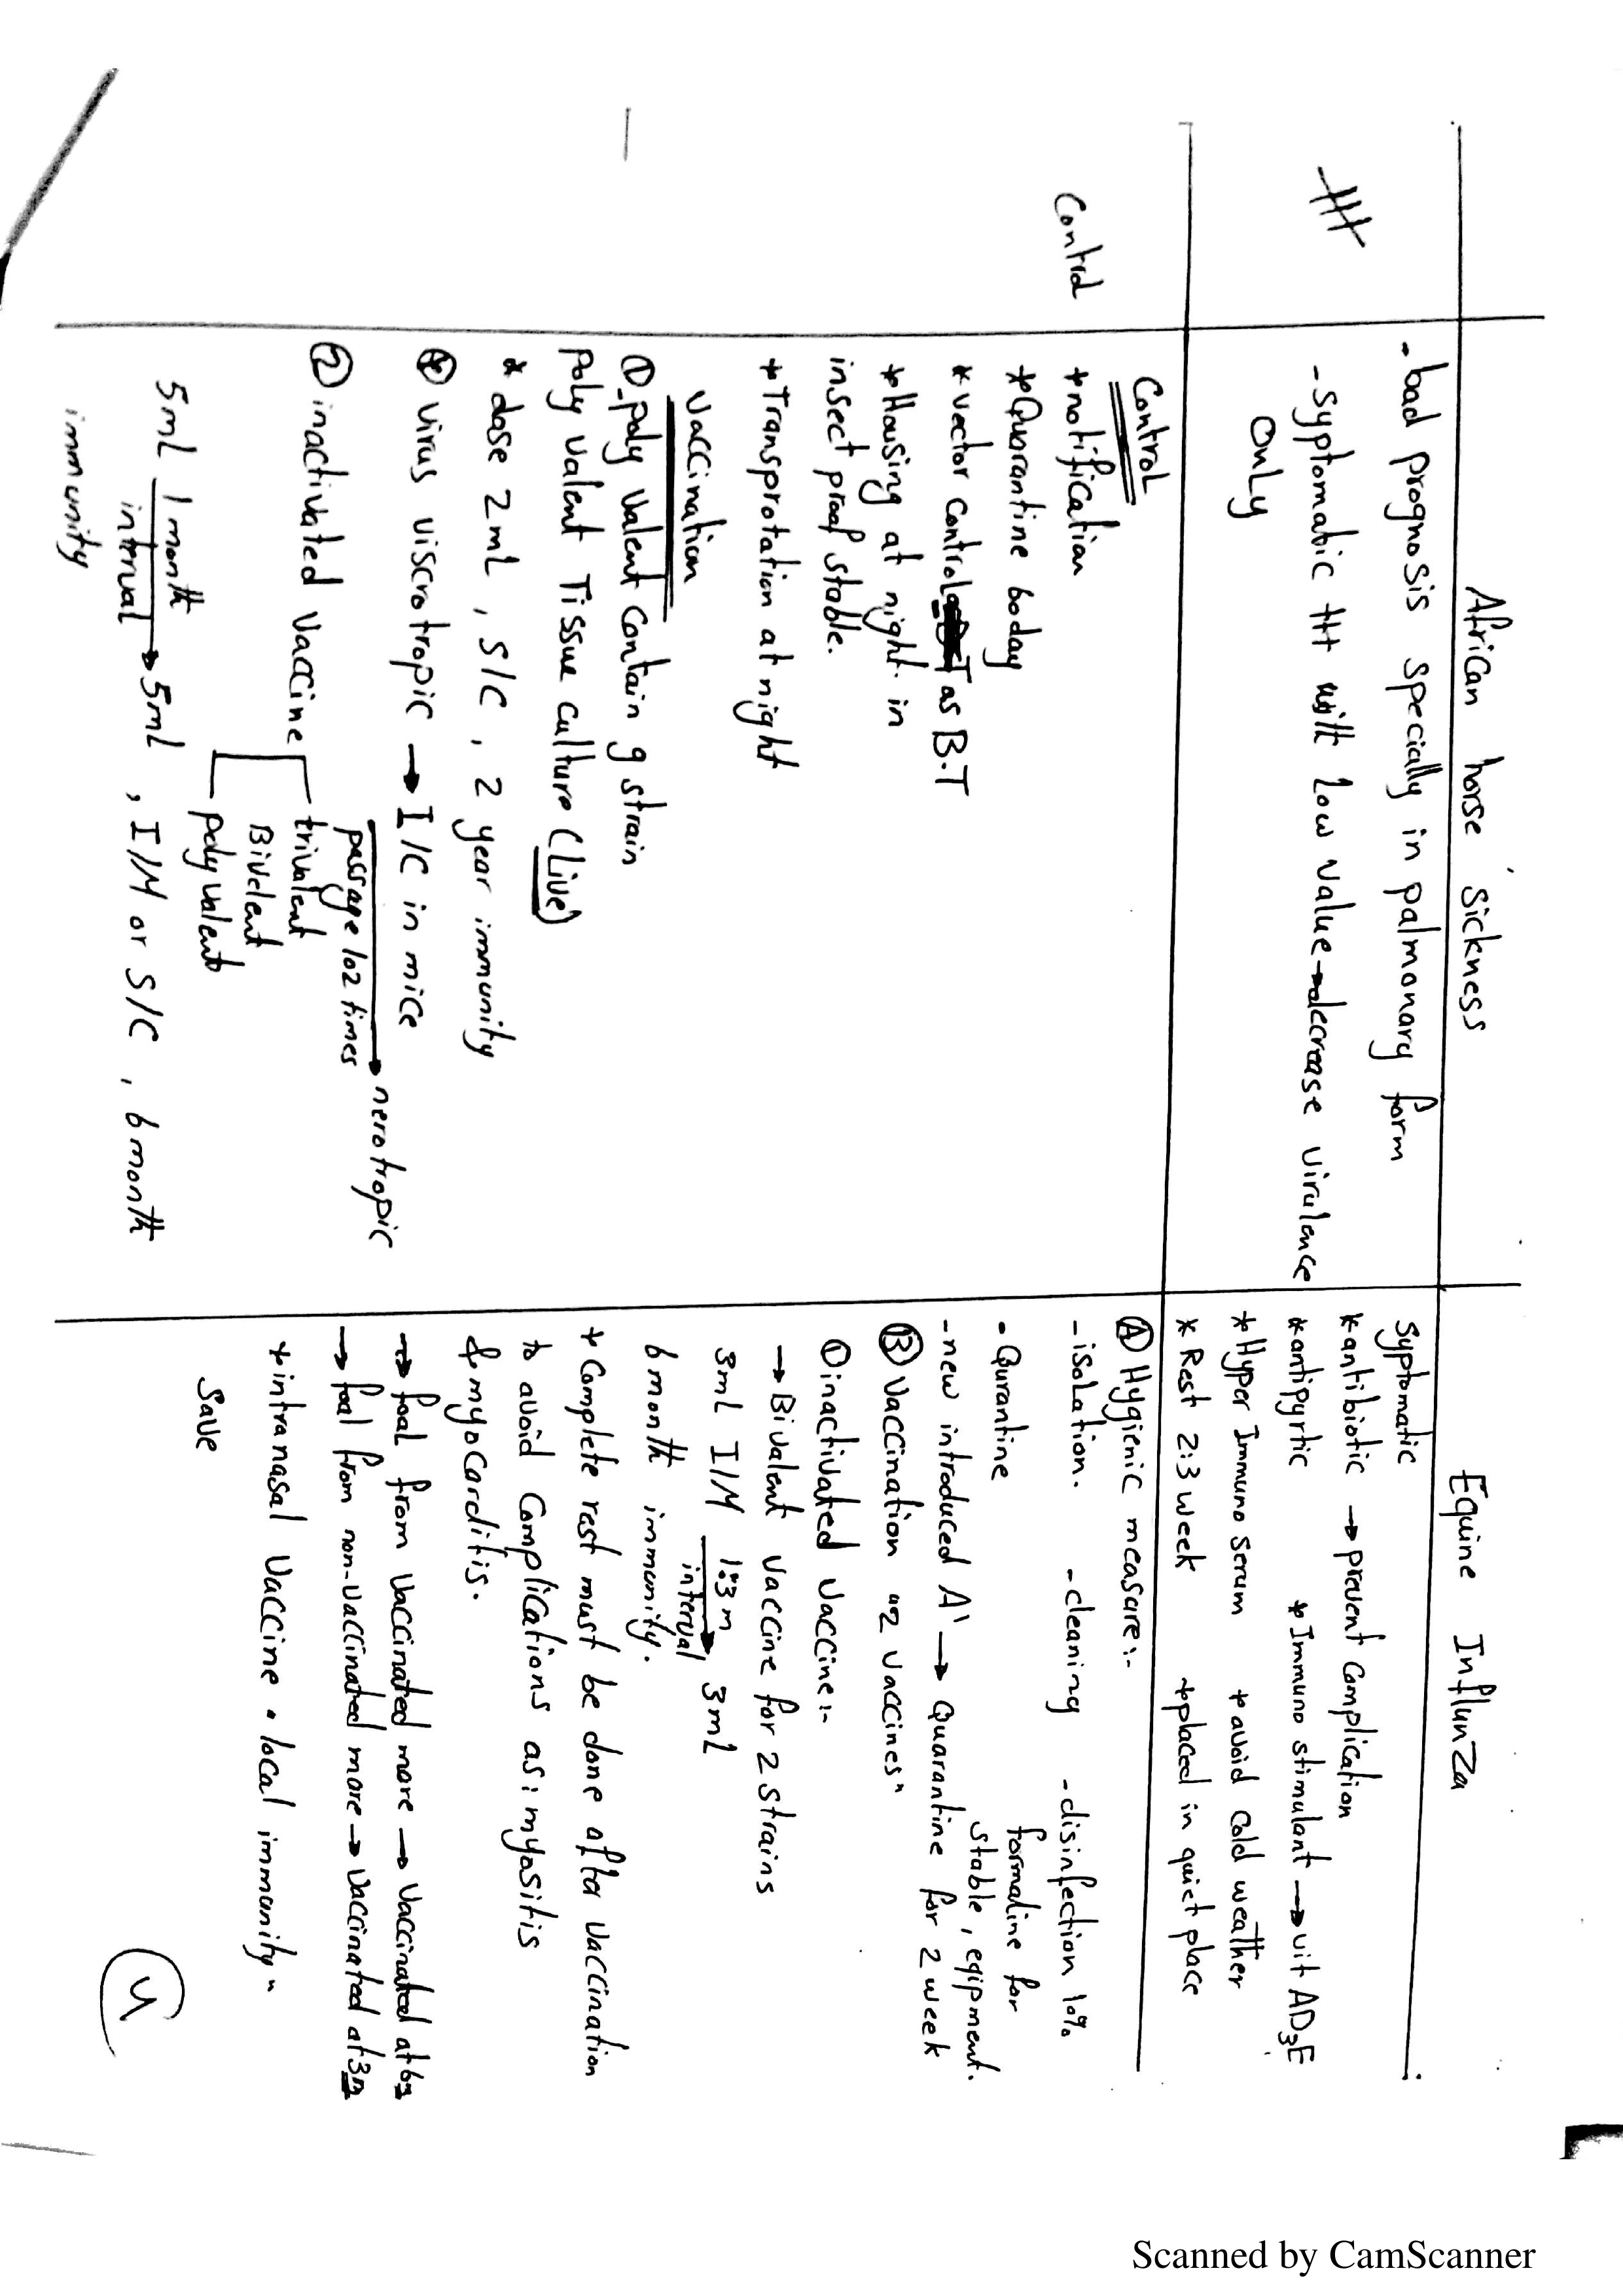 African horse sickness
Equine InflunZa
ttt
- bad prognosis specially in palmonary form
- syptomatic ttt with low value → decrease virulence
only
Syptomatic
* antibiotic → prevent complication
* antipyrtic * Immuno stimulant → vit AD3E
* Hyper Immuno serum * avoid cold weather
* Rest 2:3 week * placed in quiet place
Control
Control
* notification
* Quarantine boday
* vector control as B.T
* Housing at night in
insect proof stable.
* Transprotation at night
Vaccination
① - poly valent contain 9 strain
poly valent Tissue culture (Live)
* dose 2mL, S/C, 2 year immunity
* virus viscrotropic → I/C in mice
passage 102 times → nerotropic
② inactivated vaccine
trivalent
Bivelent
polyvalent
5mL 1 month interval → 5mL, I/M or S/C, 6 month
immunity
Ⓐ Hygienic measare:-
- isolation. - cleaning - disinfection 10%
formaline for
- Qurantine stable, eqipment.
- new introduced A' → Quarantine for 2 week
Ⓑ Vaccination "2 vaccines"
① inactivated vaccine:-
→ Bivalent vaccine for 2 strains
3mL I/M 1:3 m interval → 3mL
6 month immunity.
* Complete rest must be done after vaccination
to avoid complications as: myositis
& myocarditis.
→ foal from vaccinated more → vaccinated at 6m
→ foal from non-vaccinated more → vaccinated at 3m
* intranasal vaccine "local immunity"
save
4
Scanned by CamScanner